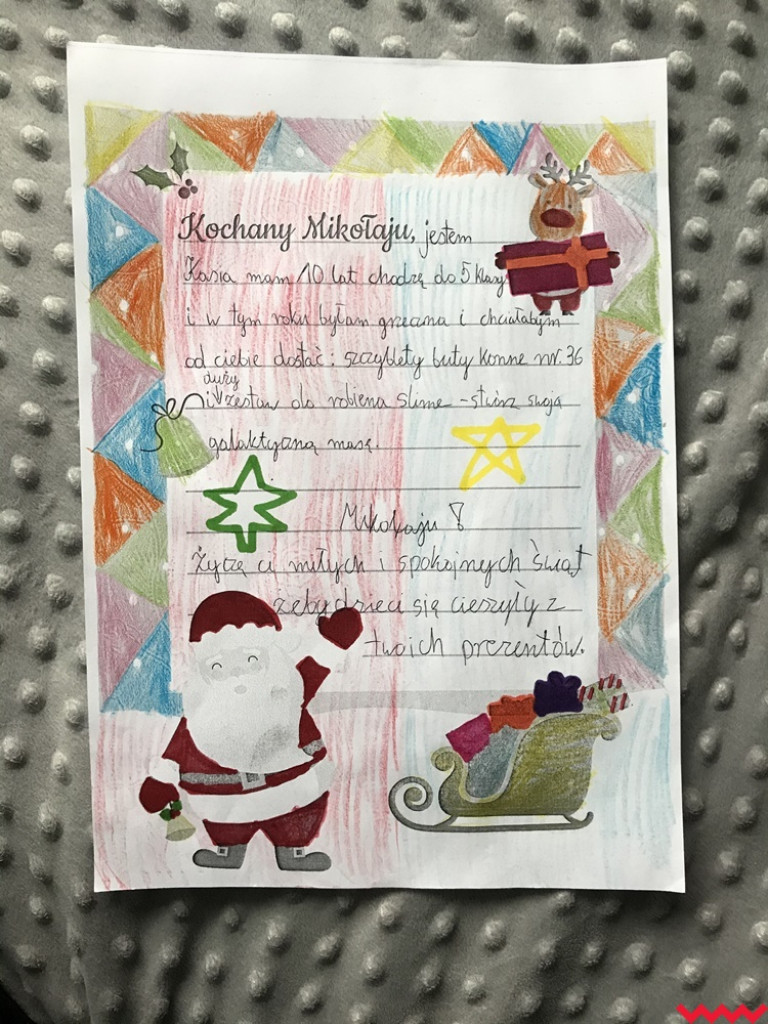 Kochany Mikołaju, jestem
Kasia mam 10 lat chodzę do 5 klasy
i w tym roku byłam grzeczna i chciałabym
od ciebie dostać: sztyblety buty konne nr. 36
duży
i zestaw do robiena slime - stwórz swoją
galaktyczną masę.
Mikołaju!
Życzę ci miłych i spokojnych świąt
żeby dzieci się cieszyły z
twoich prezentów.